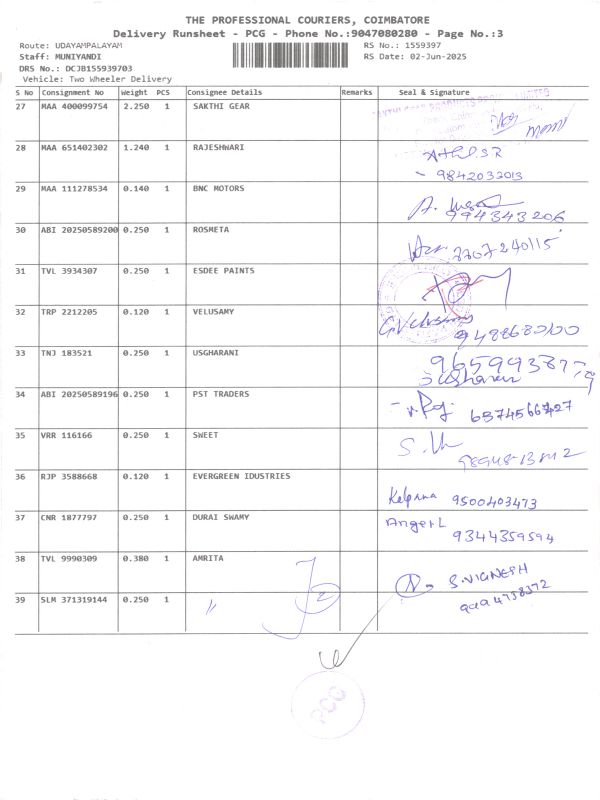 THE PROFESSIONAL COURIERS, COIMBATORE
Delivery Runsheet - PCG - Phone No.:9047080280 - Page No.:3
Route: UDAYAMPALAYAM RS No.: 1559397
Staff: MUNIYANDI RS Date: 02-Jun-2025
DRS No.: DCJB155939703
Vehicle: Two Wheeler Delivery
S No Consignment No Weight PCS Consignee Details Remarks Seal & Signature
27 MAA 400099754 2.250 1 SAKTHI GEAR
28 MAA 651402302 1.240 1 RAJESHWARI Athul.S.R
- 9842032013
29 MAA 111278534 0.140 1 BNC MOTORS
994343206
30 ABI 20250589200 0.250 1 ROSMETA
7707240115
31 TVL 3934307 0.250 1 ESDEE PAINTS
32 TRP 2212205 0.120 1 VELUSAMY G.Velusamy
9488680100
33 TNJ 183521 0.250 1 USGHARANI
34 ABI 20250589196 0.250 1 PST TRADERS
6374566427
35 VRR 116166 0.250 1 SWEET
36 RJP 3588668 0.120 1 EVERGREEN IDUSTRIES
Kalpana 9500403473
37 CNR 1877797 0.250 1 DURAI SWAMY Angel L
9344359594
38 TVL 9990309 0.380 1 AMRITA
S.VIGNESH
39 SLM 371319144 0.250 1 〃
9994758372
PCG